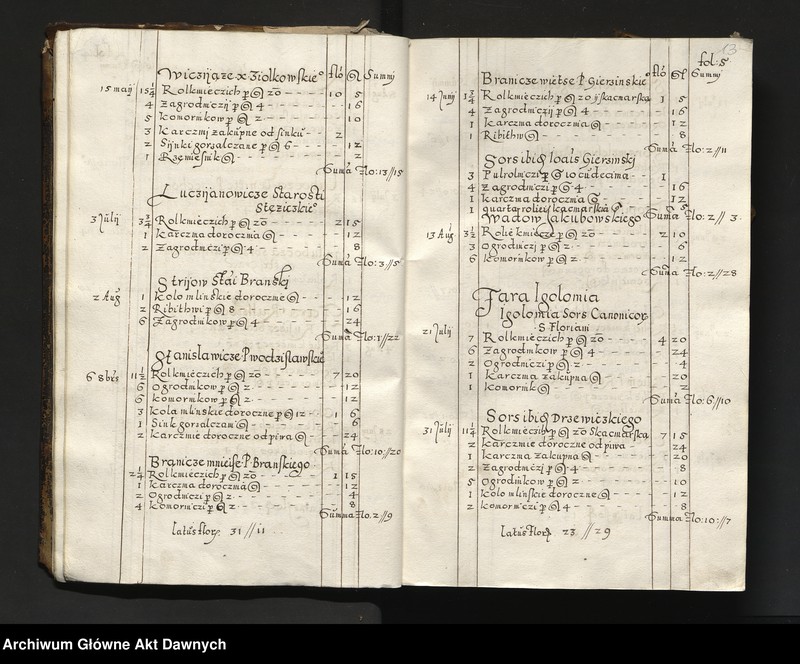 Wiczijąze x Ziolkowskie° flo gl Summy
15 maij 15 1/4 Rolkmieczich p gl 20 10 5
4 Zagrodniczij p gl 4 16
5 Komornkow p gl 2 10
3 Karczmij zakupne od sinku 2
2 Sijnki gorzalczane p gl 6 12
1 Rzemiesnik gl 2
Suma Flo: 13//15
Luczijanowicze Starosti
Stęziczkie°
3 Julij 3 3/4 Rolkmieczich p gl 20 2 15
1 Karczma doroczna gl 12
2 Zagrodniczi p gl 4 8
Suma Flo: 3//5
Strijow Stai Branskj
2 Aug 1 Kolo mlinskie doroczne gl 12
2 Ribithwi p gl 8 16
6 Zagrodnikow p gl 4 24
Suma Flo: 1//22
Stanislawicze P Wodzislawskie
6 8brs 11 1/2 Rolkmieczich p gl 20 7 20
6 Ogrodnikow p gl 2 12
6 Komornikow p gl 2 12
3 Kola mlinskie doroczne p gl 12 1 6
1 Sink gorzalczani gl 6
2 Karczmie doroczne od piwa gl 24
Suma Flo: 10//20
Branicze mnieise P Branskiego
2 1/4 Rolkmieczich p gl 20 1 15
1 Karczma doroczna gl 12
2 Ogrodniczi p gl 2 4
4 Komorniczi p gl 2 8
Summa Flo. 2//9
Latus Flor 31//11
13
fol: 5
Branicze wietse P Giersinskie° flo gl Summy
14 Junij 1 3/4 Rolkmieczich p gl 20 ijskaczmarską 1 5
4 Zagrodniczij p gl 4 16
1 Karczma doroczna gl 12
1 Ribithw gl 8
Suma Flo: 2//11
Sors ibid Ioais Giersinskj
3 Pulrolniczi p gl 10 cu decima 1
4 Zagrodniczi p gl 4 16
1 Karczma doroczna gl 12
1 quarta roliei skaczmarskia gl 5
Wadow Iakubowskiego Suma Flo: 2//3
13 Aug 3 1/2 Rolie kmiecze p gl 20 2 10
3 Ogrodniczj p gl 2 6
6 Komornkow p gl 2 12
Suma Flo: 2//28
Fara Igolomia
Igolomia Sors Canonicor
S Floriani
21 Julij 7 Rolkmieczich p gl 20 4 20
6 Zagrodnikow p gl 4 24
2 Ogrodniczi p gl 2 4
1 Karczma zakupna gl 20
1 Komornik gl 2
Suma Flo: 6//10
Sors ibid Drzewiczkiego
31 Julij 11 1/4 Rolkmieczich p gl 20 Skaczmarską 7 15
2 Karczmie doroczne od piwa 24
1 Karczma zakupna gl 20
2 Zagrodniczj p gl 4 8
5 Ogrodnikow p gl 2 10
1 Kolo mlinskie doroczne gl 12
2 Komorniczi p gl 4 8
Summa Flo: 10//7
Latus Flor 23//29
Archiwum Główne Akt Dawnych